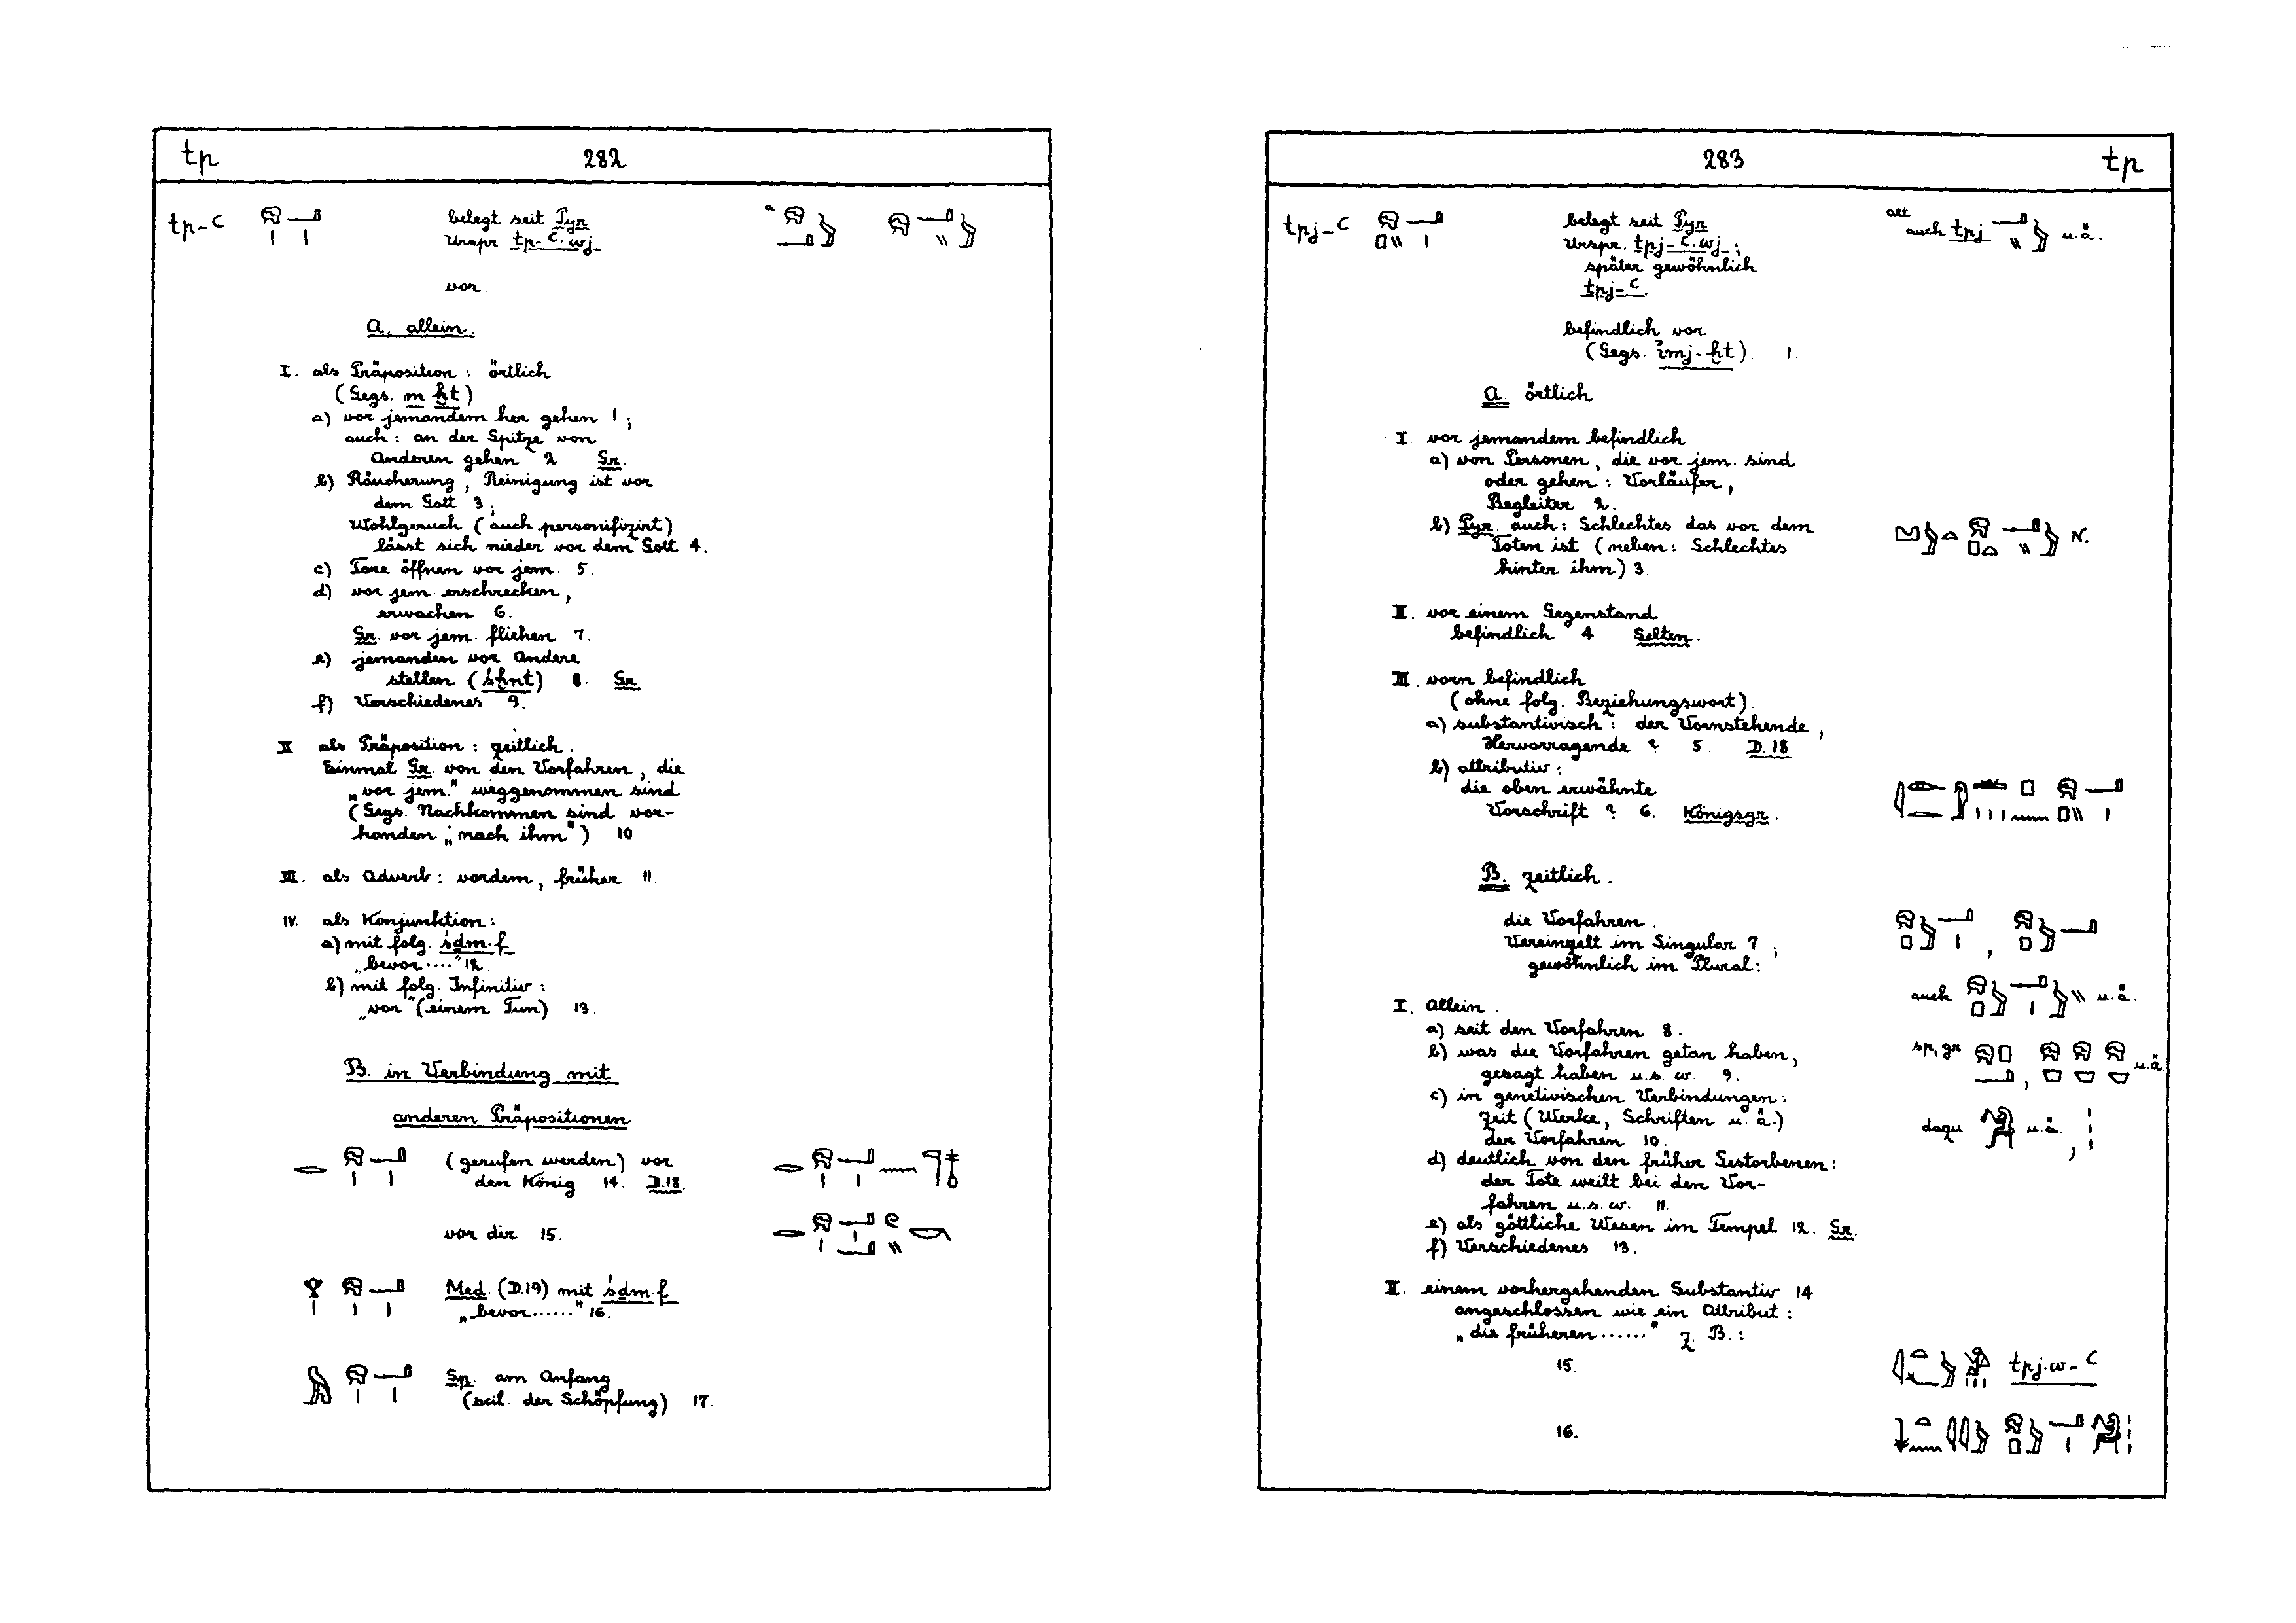 tp 282
tp-ꜥ belegt seit Pyr.
Urspr. tp-ꜥ.wj
vor.
A. allein.
I. als Präposition: örtlich
(Gegs. m ḫt)
a) vor jemandem her gehen 1;
auch: an der Spitze von
Anderen gehen 2 Gr.
b) Räucherung, Reinigung ist vor
dem Gott 3;
Wohlgeruch (auch personifizirt)
lässt sich nieder vor dem Gott 4.
c) Tore öffnen vor jem. 5.
d) vor jem. erschrecken,
erwachen 6.
Gr. vor jem. fliehen 7.
e) jemanden vor Andere
stellen (śḫnt) 8. Gr.
f) Verschiedenes 9.
II als Präposition: zeitlich.
Einmal Gr. von den Vorfahren, die
„vor jem.“ weggenommen sind
(Gegs. Nachkommen sind vor-
handen „nach ihm“) 10
III. als Adverb: vordem, früher 11.
IV. als Konjunktion:
a) mit folg. śḏm.f
„bevor....“ 12
b) mit folg. Infinitiv:
„vor“ (einem Tun) 13.
B. in Verbindung mit
anderen Präpositionen
(gerufen werden) vor
den König 14. D.18.
vor dir 15.
Med. (D.19) mit śḏm.f
„bevor......“ 16.
Sp. am Anfang
(scil. der Schöpfung) 17.
283 tp
tpj-ꜥ belegt seit Pyr. alt
Urspr. tpj-ꜥ.wj; auch tpj u.ä.
später gewöhnlich
tpj-ꜥ.
befindlich vor
(Gegs. imj-ḫt). 1.
A. örtlich
I vor jemandem befindlich
a) von Personen, die vor jem. sind
oder gehen: Vorläufer,
Begleiter 2.
b) Pyr. auch: Schlechtes das vor dem N.
Toten ist (neben: Schlechtes
hinter ihm) 3.
II. vor einem Gegenstand
befindlich 4. Selten.
III. vorn befindlich
(ohne folg. Beziehungswort).
a) substantivisch: der Vornstehende,
Hervorragende ? 5. D.18
b) attributiv:
die oben erwähnte
Vorschrift ? 6. Königsgr.
B. zeitlich.
die Vorfahren.
Vereinzelt im Singular 7;
gewöhnlich im Plural:
auch u.ä.
I. Allein.
a) seit den Vorfahren 8.
b) was die Vorfahren getan haben, sp, gr u.ä.
gesagt haben u.s.w. 9.
c) in genetivischen Verbindungen:
Zeit (Werke, Schriften u.ä.) dazu u.ä.
der Vorfahren 10.
d) deutlich von den früher Gestorbenen:
der Tote weilt bei den Vor-
fahren u.s.w. 11.
e) als göttliche Wesen im Tempel 12. Gr.
f) Verschiedenes 13.
II. einem vorhergehenden Substantiv 14
angeschlossen wie ein Attribut:
„die früheren......“ z. B.:
15. tpj.w-ꜥ
16.